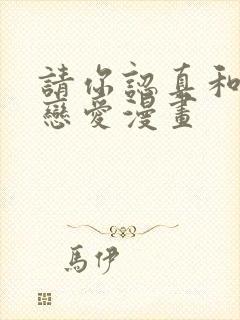 請你認真和
戀愛漫畫
馬伊